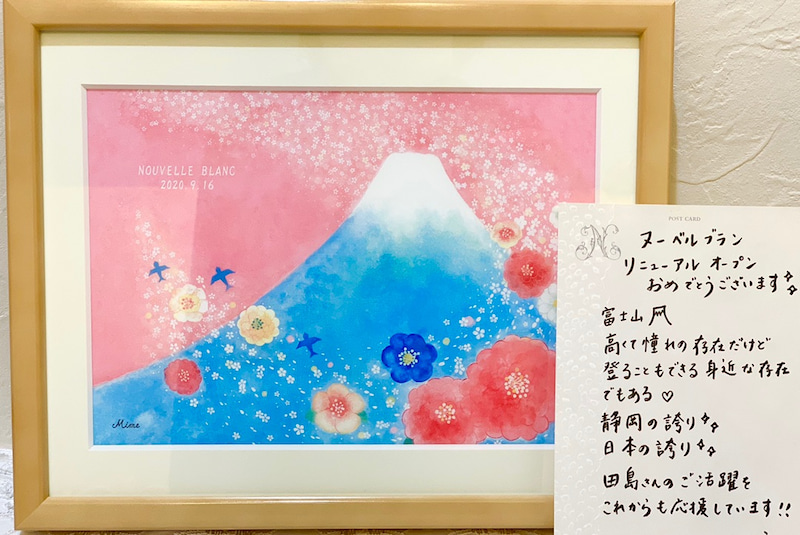 NOUVELLE BLANC
2020.9.16
Miere
POST CARD
N
ヌーベルブラン
リニューアル オープン
おめでとうございます
富士山
高くて憧れの存在だけど
登ることもできる身近な存在
でもある♡
静岡の誇り
日本の誇り
田島さんのご活躍を
これからも応援しています!!